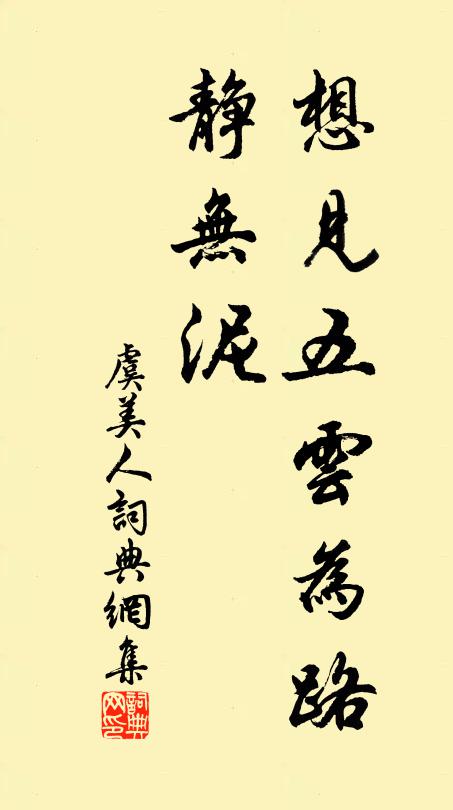 想見五雲為路
靜無泥
虞美人詞典網集
詞典網印